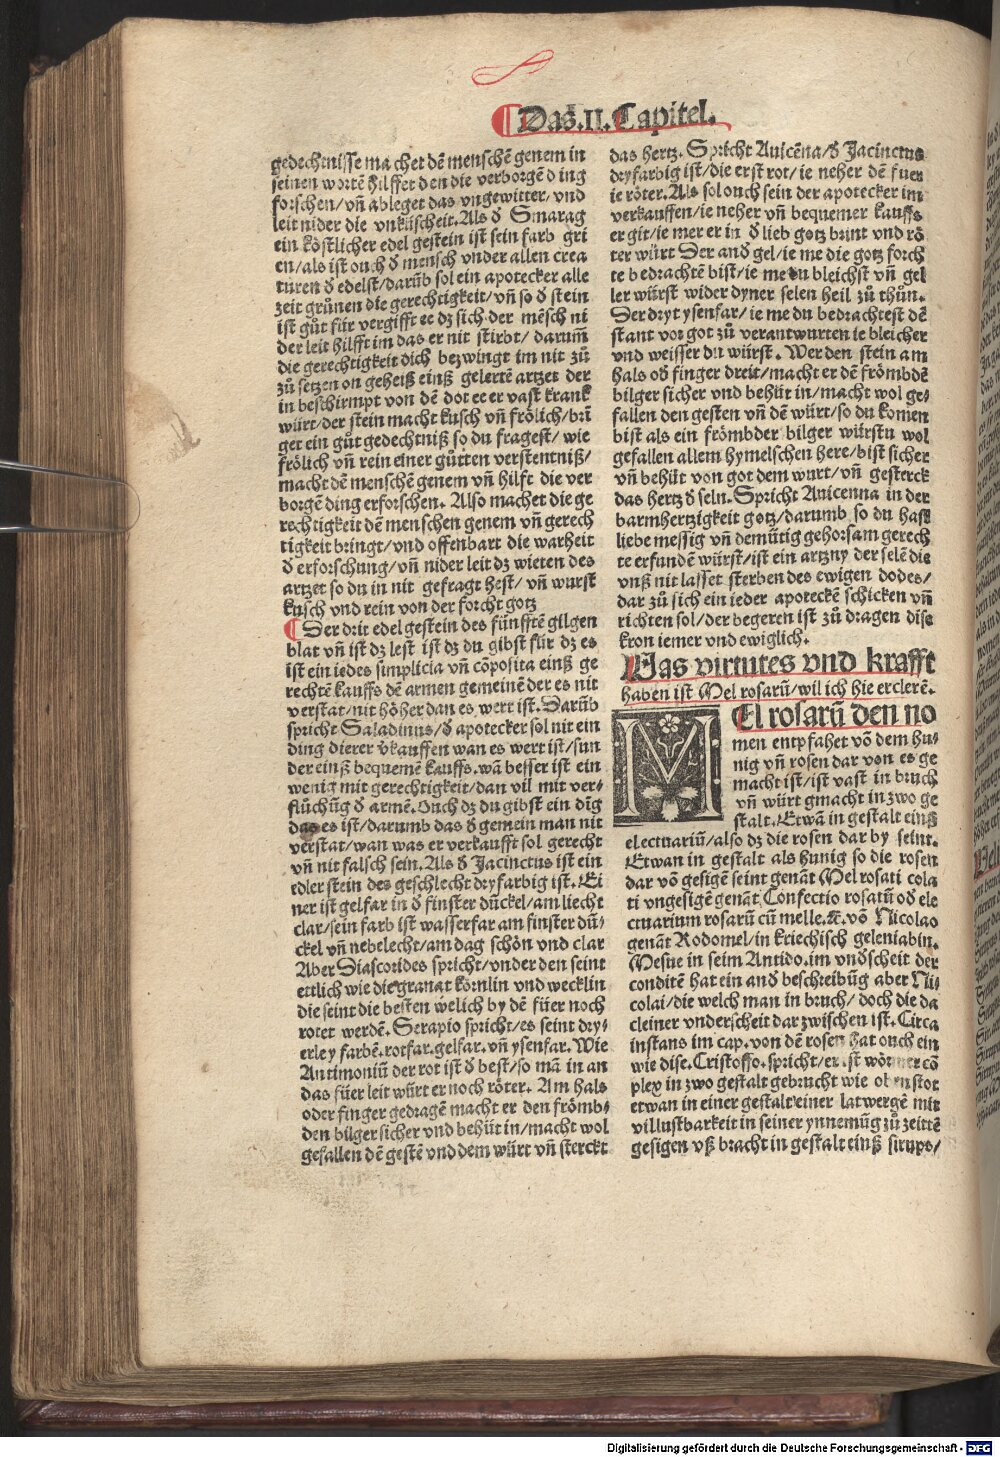 Das .II. Capitel.
gedechtnisse machet dē menschē genem in
seinen wortē hilffet den die verborgē ding
forschen/vñ ableget das vngewitter/vnd
leit nider die vnküscheit. Als ď Smarag
ein köstlicher edel gestein ist sein farb gri
en/als ist ouch ď mensch vnder allen crea
turen ď edelst/darūb sol ein apotecker alle
zeit grůnen die gerechtigkeit/vñ so ď stein
ist gůt für vergifft ee dz sich der mēsch ni
der leit hilfft im das er nit stirbt/ darum̄
die gerechtigkeit dich bezwingt im nit zů
zů setzen on geheiß einß gelertē artzet der
in beschirmpt von dē dot ee er vast krank
würt/der stein macht kusch vñ frölich/brī
get ein gůt gedechtniß so du fragest/ wie
frölich vñ rein einer gůtten verstentniß/
macht dē menschē genem vñ hilft die ver
borgē ding erforschen. Also machet die ge
rechtigkeit dē menschen genem vñ gerech
tigkeit bringt/vnd offenbart die warheit
ď erforschung/vñ nider leit dz wieten des
artzet so du in nit gefragt hest/ vñ wurst
kusch vnd rein von der forcht gotz
¶ Der drit edel gestein des fünfftē gilgen
blat vñ ist dz lest ist dz du gibst für dz es
ist ein iedes simplicia vñ cōposita einß ge
rechtē kauffs dē armen gemeinē der es nit
verstat/nit höher dan es wert ist. Darūb
spricht Saladinus/ď apotecker sol nit ein
ding dierer v̓kauffen wan es wert ist/sun
der einß bequemē kauffs. wā besser ist ein
wenig mit gerechtigkeit/dan vil mit ver⸗
flůchūg ď armē. Ouch dz du gibst ein dīg
das es ist/darumb das ď gemein man nit
verstat/wan was er verkaufft sol gerecht
vñ nit falsch sein. Als ď Jacinctus ist ein
edler stein des geschlecht dryfarbig ist. Ei
ner ist gelfar in ď finster dūckel/am liecht
clar/sein farb ist wasserfar am finster dū⸗
ckel vñ nebelecht/am dag schön vnd clar
Aber Diascorides spricht/vnder den seint
ettlich wie die granat körnlin vnd wecklin
die seint die besten welich by dē füer noch
rotet werdē. Serapio spricht/es seint dry⸗
erley farbē. rotfar. gelfar. vñ ysenfar. Wie
Antimoniū der rot ist ď best/so mā in an
das füer leit würt er noch röter. Am hals
oder finger gedragē macht er den frömb⸗
den bilger sicher vnd behüt in/macht wol
gefallen dē gestē vnd dem würt vñ sterckt
das hertz. Spricht Auicēna/ď Jacinctus
dryfarbig ist/die erst rot/ie neher dē fuer
ie röter. Als sol ouch sein der apotecker im
verkauffen/ie neher vñ bequemer kauffs
er git/ie mer er in ď lieb gotz brint vnd rö
ter würt Der anď gel/ie me die gotz forch
te bedrachtē bist/ie me du bleichst vñ gel
ler würst wider dyner selen heil zů thůn.
Der dryt ysenfar/ie me du bedrachtest dē
stant vor got zů verantwurten ie bleicher
vnd weisser du würst. Wer den stein am
hals oď finger dreit/macht er dē frömbdē
bilger sicher vnd behüt in/macht wol ge⸗
fallen den gesten vñ dē würt/so du komen
bist als ein frömbder bilger würstu wol
gefallen allem hymelschen here/bist sicher
vñ behüt von got dem wurt/vñ gesterck
das hertz ď seln. Spricht Auicenna in der
barmhertzigkeit gotz/darumb so du hast
liebe messig vñ demütig gehorsam gerech
te erfundē würst/ist ein artzny der selē die
vnß nit lasset sterben des ewigen dodes/
dar zů sich ein ieder apoteckē schicken vñ
richten sol/der begeren ist zů dragen dise
kron iemer vnd ewiglich.
Was virtutes vnd krafft
haben ist Mel rosarū/wil ich hie erclerē.
MEl rosarū den no
men entpfahet vō dem hu⸗
nig vñ rosen dar von es ge
macht ist/ist vast in bruch
vñ würt gmacht in zwo ge
stalt. Etwā in gestalt einß
electuariū/also dz die rosen dar by seint.
Etwan in gestalt als hunig so die rosen
dar vō gesigē seint genāt Mel rosati cola
ti vngesigē genāt Confectio rosatū oď ele
ctuarium rosarū cū melle. ⁊c̄. vō Nicolao
genāt Rodomel/in kriechisch geleniabin.
Mesue in seim Antido. im vnďscheit der
conditē hat ein anď beschreibūg aber Ni⸗
colai/die welch man in bruch/ doch die da
cleiner vnderscheit dar zwischen ist. Circa
instans im cap. von dē rosen hat ouch ein
wie dise. Cristoffo. spricht/er ist cō
plex in zwo gestalt gebrucht wie oben stot
etwan in einer gestalt einer latwergē mit
villustbarkeit in seiner ynnemūg zů zeittē
gesigen vß bracht in gestalt einß sirups/
Digitalisierung gefördert durch die Deutsche Forschungsgemeinschaft - DFG